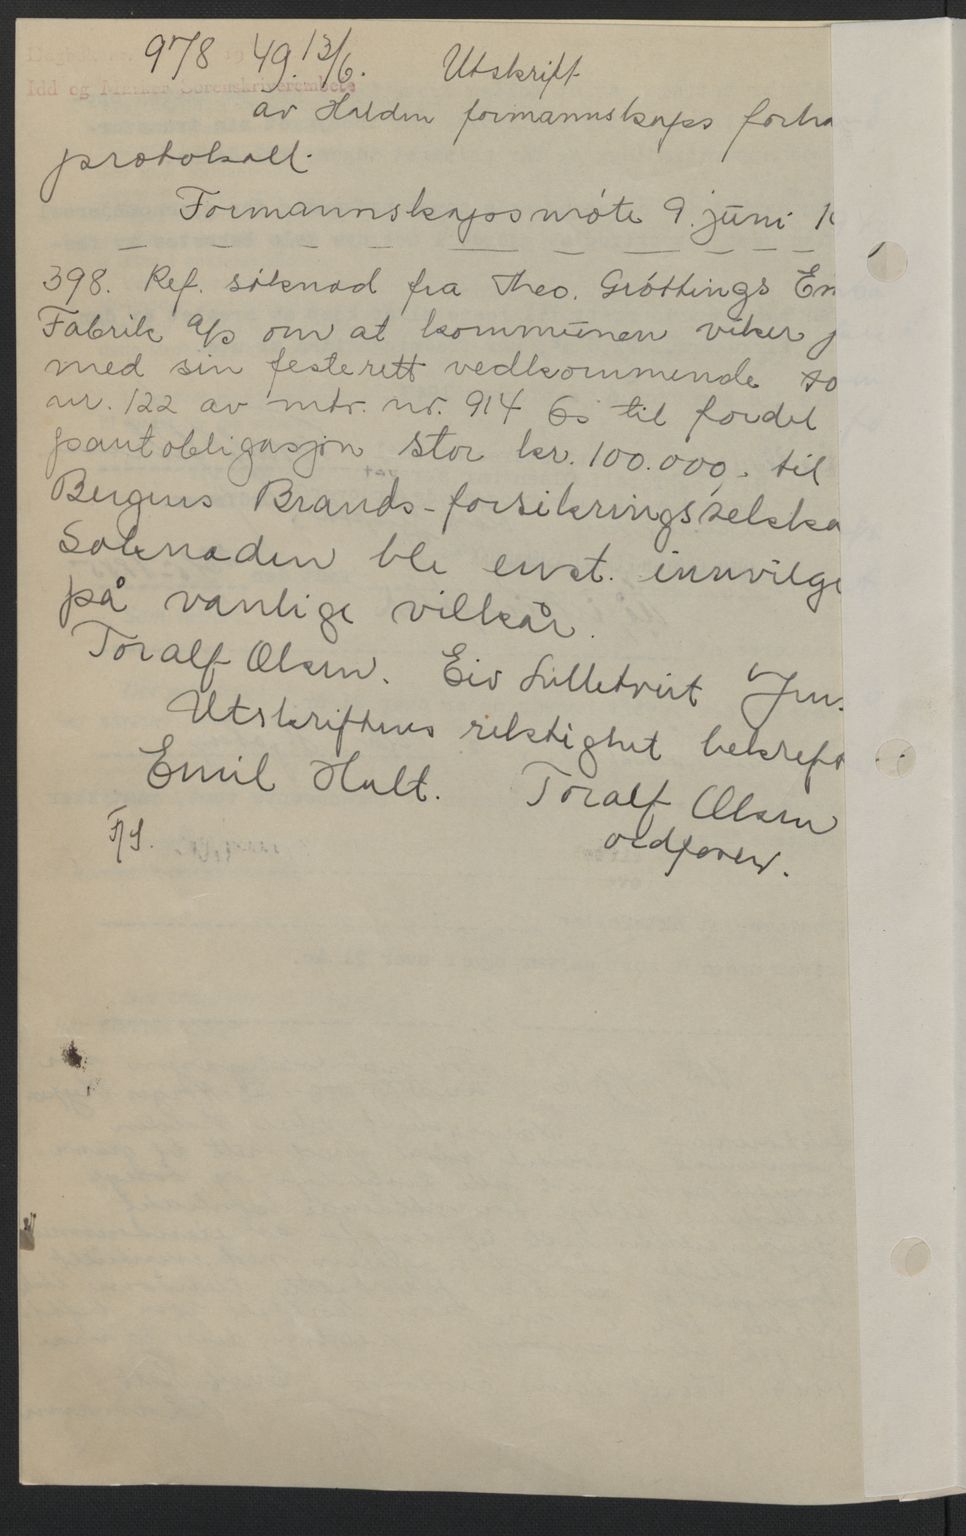 978 49. 13/6. Utskrift
Idd og Marker Sorenskriverembete
av Halden formannskaps forha
protokoll.
Formannskapsmöte 9. juni 1
398. Ref. söknad fra Theo. Gröttings Em
Fabrik A/s om at kommunen viker p
med sin festerett vedkommende to
nr. 122 av mtr. nr. 914 til fordel
pantobligasjon stor kr. 100.000,- til
Bergens Brands-forsikringsselska
Söknaden ble enst. innvilge
på vanlige vilkår.
Toralf Olsen. Eiv Lilletveit Jens
Utskriftens riktighet bekreft
Emil Holt. Toralf Olsen
ordförer.